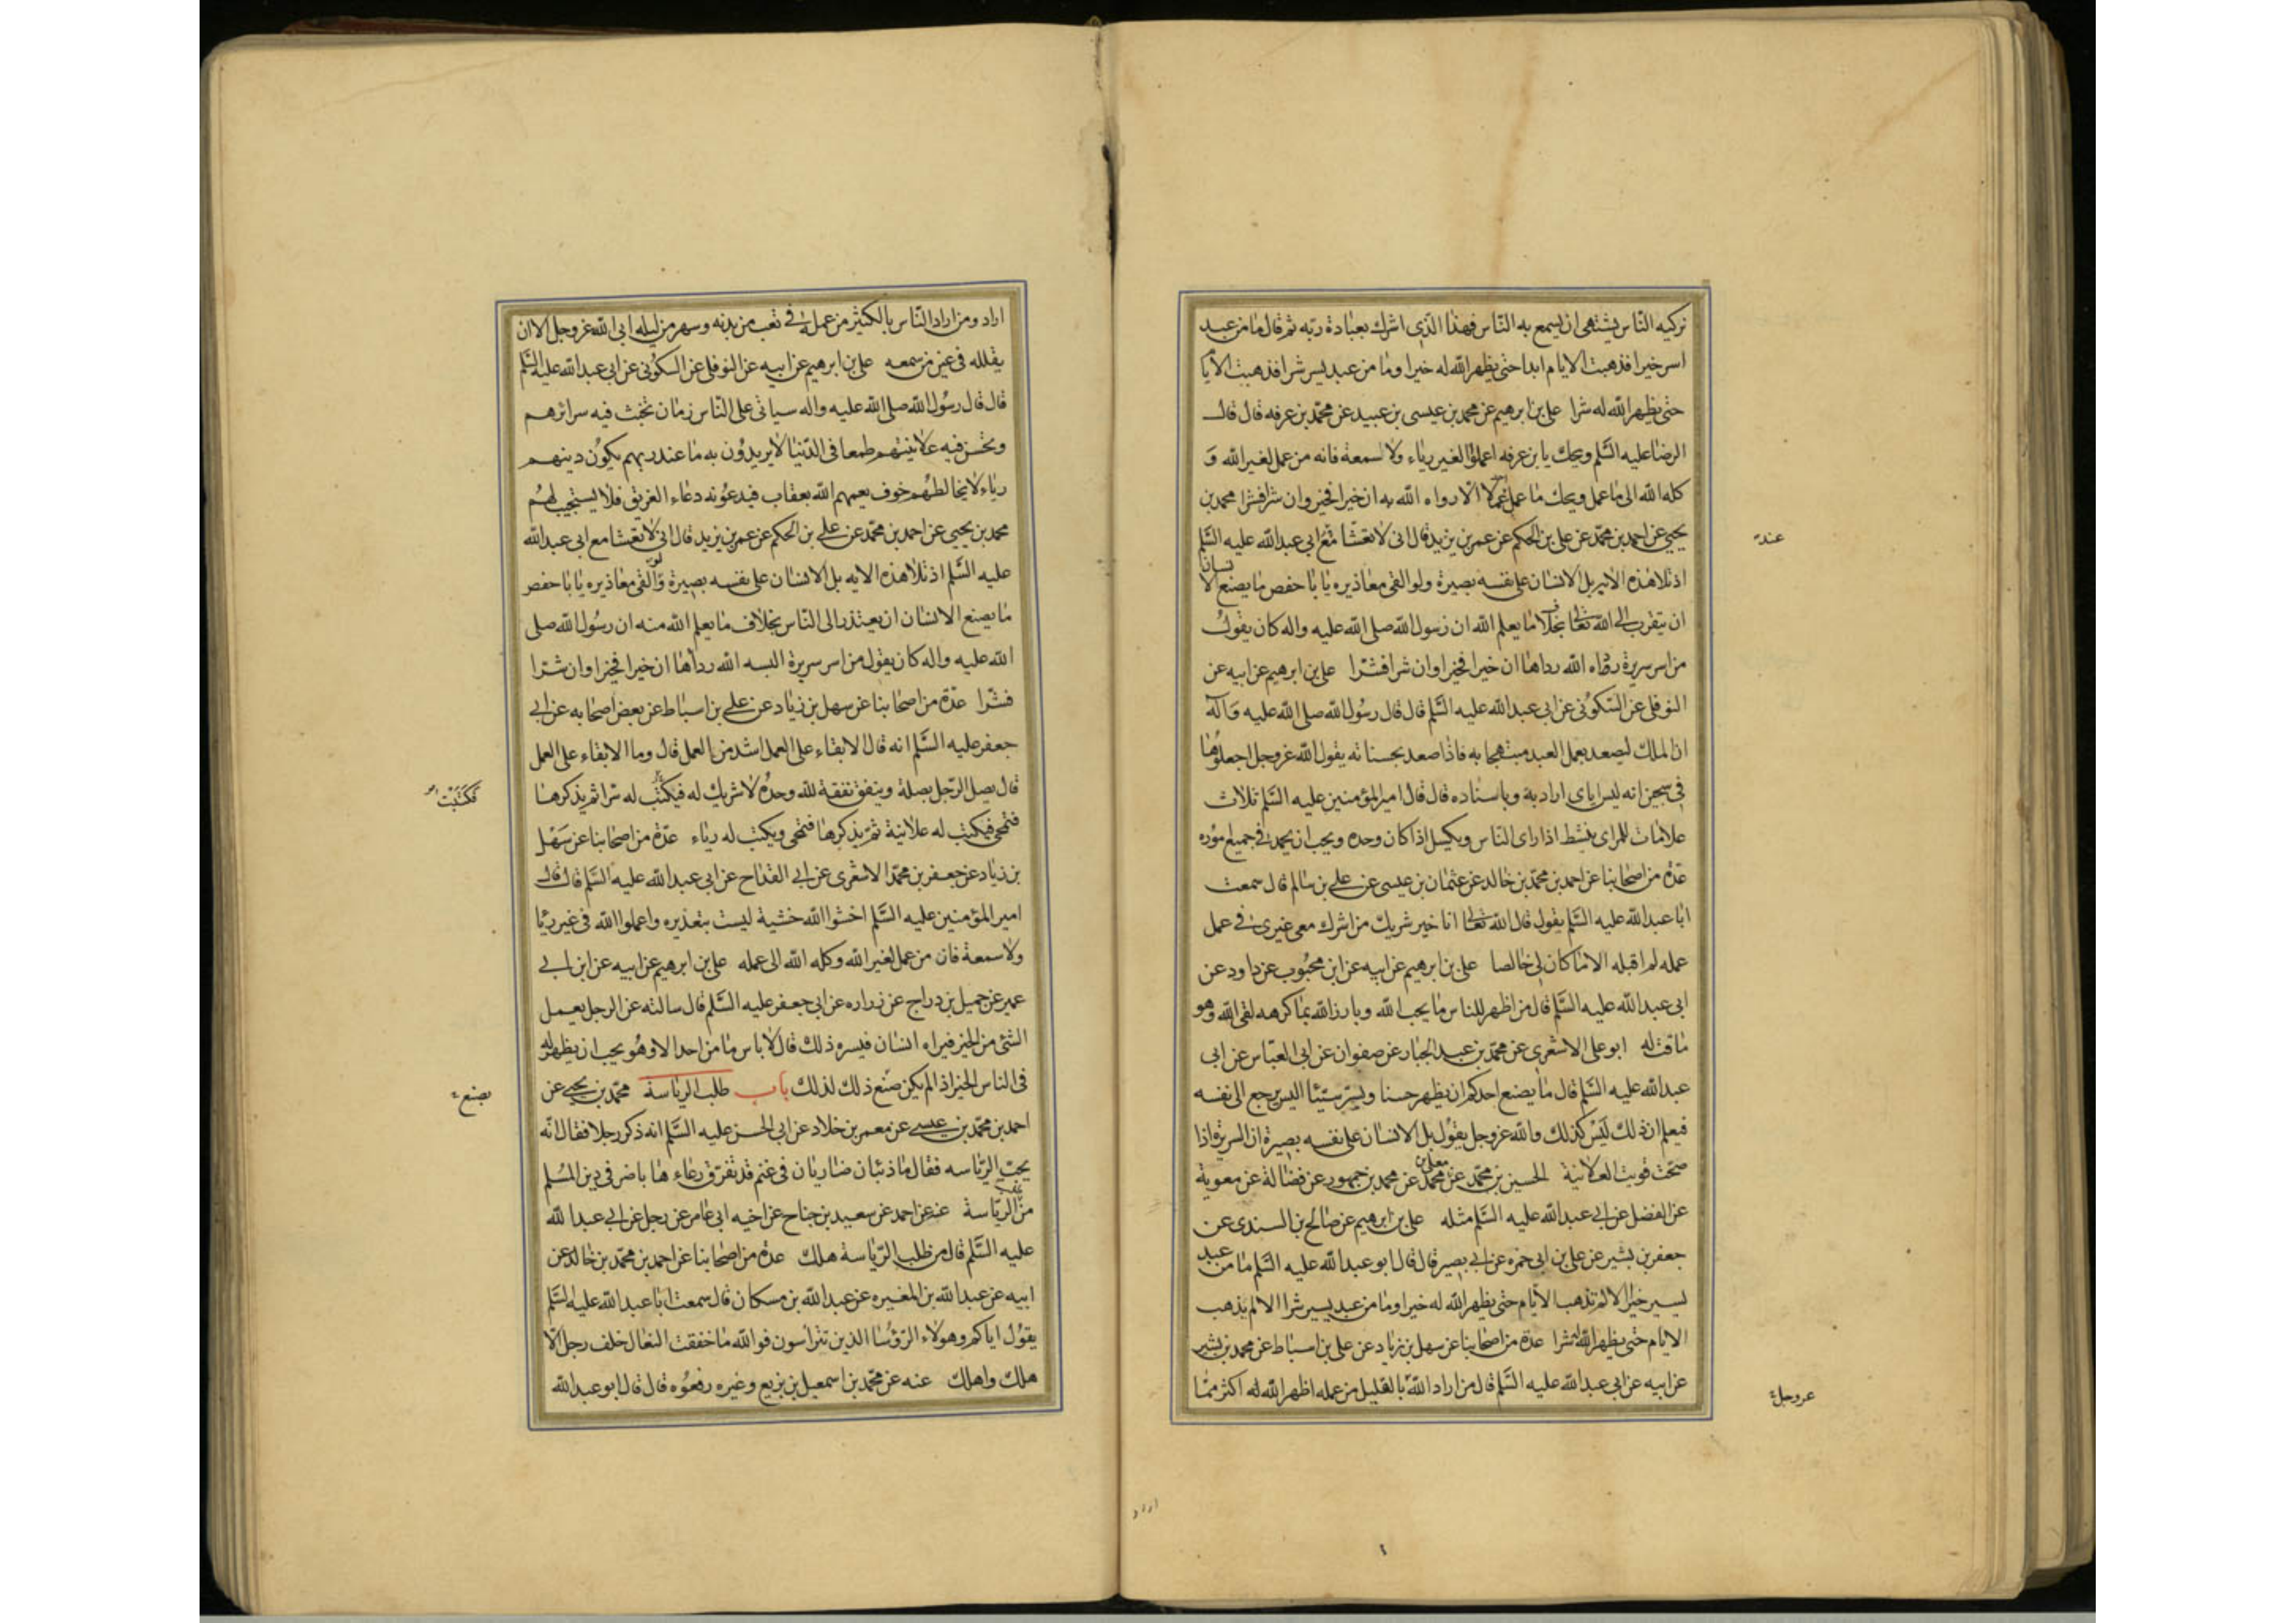 تزكيه الناس يشتهى ان يسمع به الناس فهذا الذى اشرك بعبادة ربه ثم قال ما من عبد
اسر خيرا فذهبت الايام ابدا حتى يظهر الله له خيرا وما من عبد يسر شرا فذهبت الايا
حتى يظهر الله له شرا على بن ابرهيم عن محمد بن عيسى بن عبيد عن محمد بن عرفه قال قال
الرضا عليه السلم ويحك يا بن عرفه اعملوا لغير رياء ولا سمعة فانه من عمل لغير الله و
كله الله الى ما عمل ويحك ما عمل احد عملا الا رداه الله به ان خيرا فخير وان شرا فشرا محمد بن
يحيى عن احمد بن محمد عن على بن الحكم عن عمر بن يزيد قال انى لاتعشا مع ابى عبد الله عليه السلم
اذ تلا هذه الايه بل الانسان على نفسه بصيرة ولو القى معاذيره يا با حفص ما يصنع الا نسان
ان يتقرب الى الله تعالى بخلاف ما يعلم الله ان رسول الله صلى الله عليه واله كان يقول
من اسر سريرة رداه الله رداها ان خيرا فخيرا وان شرا فشرا على بن ابرهيم عن ابيه عن
النوفلى عن السكونى عن ابى عبد الله عليه السلم قال قال رسول الله صلى الله عليه واله
ان الملك ليصعد بعمل العبد مبتهجا به فاذا صعد بحسناته يقول الله عز وجل اجعلوها
فى سجين انه ليس اياى اراد به وباسناده قال قال امير المؤمنين عليه السلم ثلاث
علامات للمراى ينشط اذا راى الناس ويكسل اذا كان وحده ويحب ان يحمد فى جميع اموره
عدة من اصحابنا عن احمد بن محمد بن خالد عن عثمان بن عيسى عن على بن سالم قال سمعت
ابا عبد الله عليه السلم يقول قال الله تعالى انا خير شريك من اشرك معى غيرى فى عمل
عمله لم اقبله الا ما كان لى خالصا على بن ابرهيم عن ابيه عن ابن محبوب عن داود عن
ابى عبد الله عليه السلم قال من اظهر للناس ما يحب الله وبارز الله بما كرهه لقى الله وهو
ماقت له ابو على الاشعرى عن محمد بن عبد الجبار عن صفوان عن ابى العباس عن ابى
عبد الله عليه السلم قال ما يصنع احدكم ان يظهر حسنا ويسر سيئا اليس يرجع الى نفسه
فيعلم ان ذلك ليس كذلك والله عز وجل يقول بل الانسان على نفسه بصيرة ان السريرة اذا
صحت قويت العلانية الحسين بن محمد عن معلى بن محمد عن محمد بن جمهور عن فضالة عن معوية
عن الفضل عن ابى عبد الله عليه السلم مثله على بن ابرهيم عن صالح بن السندى عن
جعفر بن بشير عن على بن ابى حمزه عن ابى بصير قال قال ابو عبد الله عليه السلم ما من عبد
يسير خيرا الا لم تذهب الايام حتى يظهر الله له خيرا وما من عبد يسير شرا الا لم يذهب
الايام حتى يظهر الله له شرا عدة من اصحابنا عن سهل بن زياد عن على بن اسباط عن محمد بن بشير
عن ابيه عن ابى عبد الله عليه السلم قال من اراد الله بالقليل من عمله اظهر الله له اكثر مما
عند
عز وجل
اراد
اراد ومن اراد الناس بالكثير من عمله فى تعب من بدنه وسهر من ليله ابى الله عز وجل الا ان
يقلله فى عين من سمعه على بن ابرهيم عن ابيه عن النوفلى عن السكونى عن ابى عبد الله عليه السلم
قال قال رسول الله صلى الله عليه واله سياتى على الناس زمان تخبث فيه سرائرهم
وتحسن فيه علانيتهم طمعا فى الدنيا لا يريدون به ما عند ربهم يكون دينهم
رياء لا يخالطهم خوف يعمهم الله بعقاب فيدعونه دعاء الغريق فلا يستجيب لهم
محمد بن يحيى عن احمد بن محمد عن على بن الحكم عن عمر بن يزيد قال انى لاتعشا مع ابى عبد الله
عليه السلم اذ تلا هذه الايه بل الانسان على نفسه بصيرة ولو القى معاذيره يا با حفص
ما يصنع الانسان ان يعتذر الى الناس بخلاف ما يعلم الله منه ان رسول الله صلى
الله عليه واله كان يقول من اسر سريرة البسه الله رداها ان خيرا فخيرا وان شرا
فشرا عدة من اصحابنا عن سهل بن زياد عن على بن اسباط عن بعض اصحابه عن ابى
جعفر عليه السلم انه قال الابقاء على العمل اشد من العمل قال وما الابقاء على العمل
قال يصل الرجل بصلة وينفق نفقة لله وحده لا شريك له فيكتب له سرا ثم يذكرها
فتمحى فيكتب له علانية ثم يذكرها فتمحى ويكتب له رياء عدة من اصحابنا عن سهل
بن زياد عن جعفر بن محمد الاشعرى عن ابى القداح عن ابى عبد الله عليه السلم قال قال
امير المؤمنين عليه السلم اخشوا الله خشية ليست بتعذيره واعملوا الله فى غير ريا
ولا سمعة فان من عمل لغير الله وكله الله الى عمله على بن ابرهيم عن ابيه عن ابن ابى
عمير عن جميل بن دراج عن زراره عن ابى جعفر عليه السلم قال سالته عن الرجل يعمل
الشئ من الخير فيراه انسان فيسره ذلك قال لا باس ما من احد الا وهو يحب ان يظهر له
فى الناس الخير اذا لم يكن صنع ذلك لذلك باب طلب الرياسة محمد بن يحيى عن
احمد بن محمد بن عيسى عن معمر بن خلاد عن ابى الحسن عليه السلم انه ذكر رجلا فقال انه
يحب الرياسه فقال ما ذئبان ضاريان فى غنم قد تفرق رعاءها باضر فى دين المسلم
من الرياسة عنه عن احمد عن سعيد بن جناح عن اخيه ابى عامر عن رجل عن ابى عبد الله
عليه السلم قال من طلب الرياسة هلك عدة من اصحابنا عن احمد بن محمد بن خالد عن
ابيه عن عبد الله بن المغيره عن عبد الله بن مسكان قال سمعت ابا عبد الله عليه السلم
يقول اياكم وهولاء الرؤسا الذين تتراسون فوالله ما خفقت النعال خلف رجل الا
هلك واهلك عنه عن محمد بن اسمعيل بن بزيع وغيره رفعوه قال قال ابو عبد الله
فكتبت
يصنع